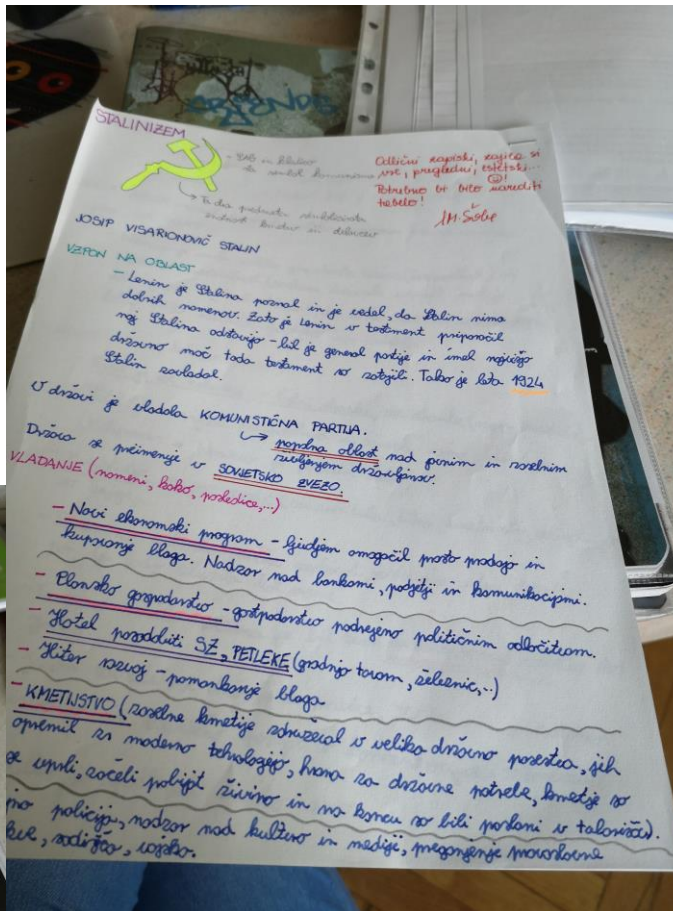 CRFENDS
STALINIZEM
- SRP in kladivo
ta simbol komunizma
→ Ta dva predmeta
kmetov in delavcev
Odlični zapiski, zajel si
vse, pregledni, estetski...
Potrebno bi bilo narediti
tabelo!
JOSIP VISARIONOVIČ STALIN
VZPON NA OBLAST
- Lenin je Stalina poznal in je vedel, da Stalin nima
dobrih namenov. Zato je Lenin v testment priporočil
naj Stalina odstavijo - bil je general partije in imel najvišjo
državno moč toda testament so zatajili. Tako je leta 1924
Stalin zavladal.
V državi je vladala KOMUNISTIČNA PARTIJA.
→ popolna oblast nad javnim in zasebnim
življenjem državljanov.
Država se preimenuje v SOVJETSKO ZVEZO.
VLADANJE (nameni, kako, posledice,...)
- Novi ekonomski program - ljudjem omogočil prosto prodajo in
kupovanje blaga. Nadzor nad bankami, podjetji in komunikacijami.
- Plansko gospodarstvo - gospodarstvo podrejeno političnim odločitvam.
- Hotel posodobiti SZ, PETLEKE (gradnja tovarn, železnic,..)
- Hiter razvoj - pomankanje blaga
- KMETIJSTVO (zasebne kmetije združeval v velika državno posestva, jih
opremil z moderno tehnologijo, hrana za državne potrebe, kmetje so
se uprli, začeli pobijat živino in na koncu so bili poslani v taborišča).
jno policija, nadzor nad kulturo in mediji, preganjenje pravoslavne
kve, sodišča, vojsko.